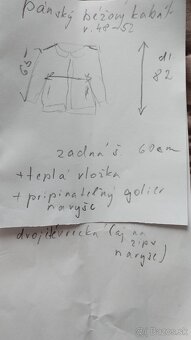 pánský béžový kabát
v. 48-52
63
dl
82
zadná š 60cm
+teplá vložka
+pripinateľný golier
navyše
dvojvrecká (aj na
zips
navyše)
© bazos.sk